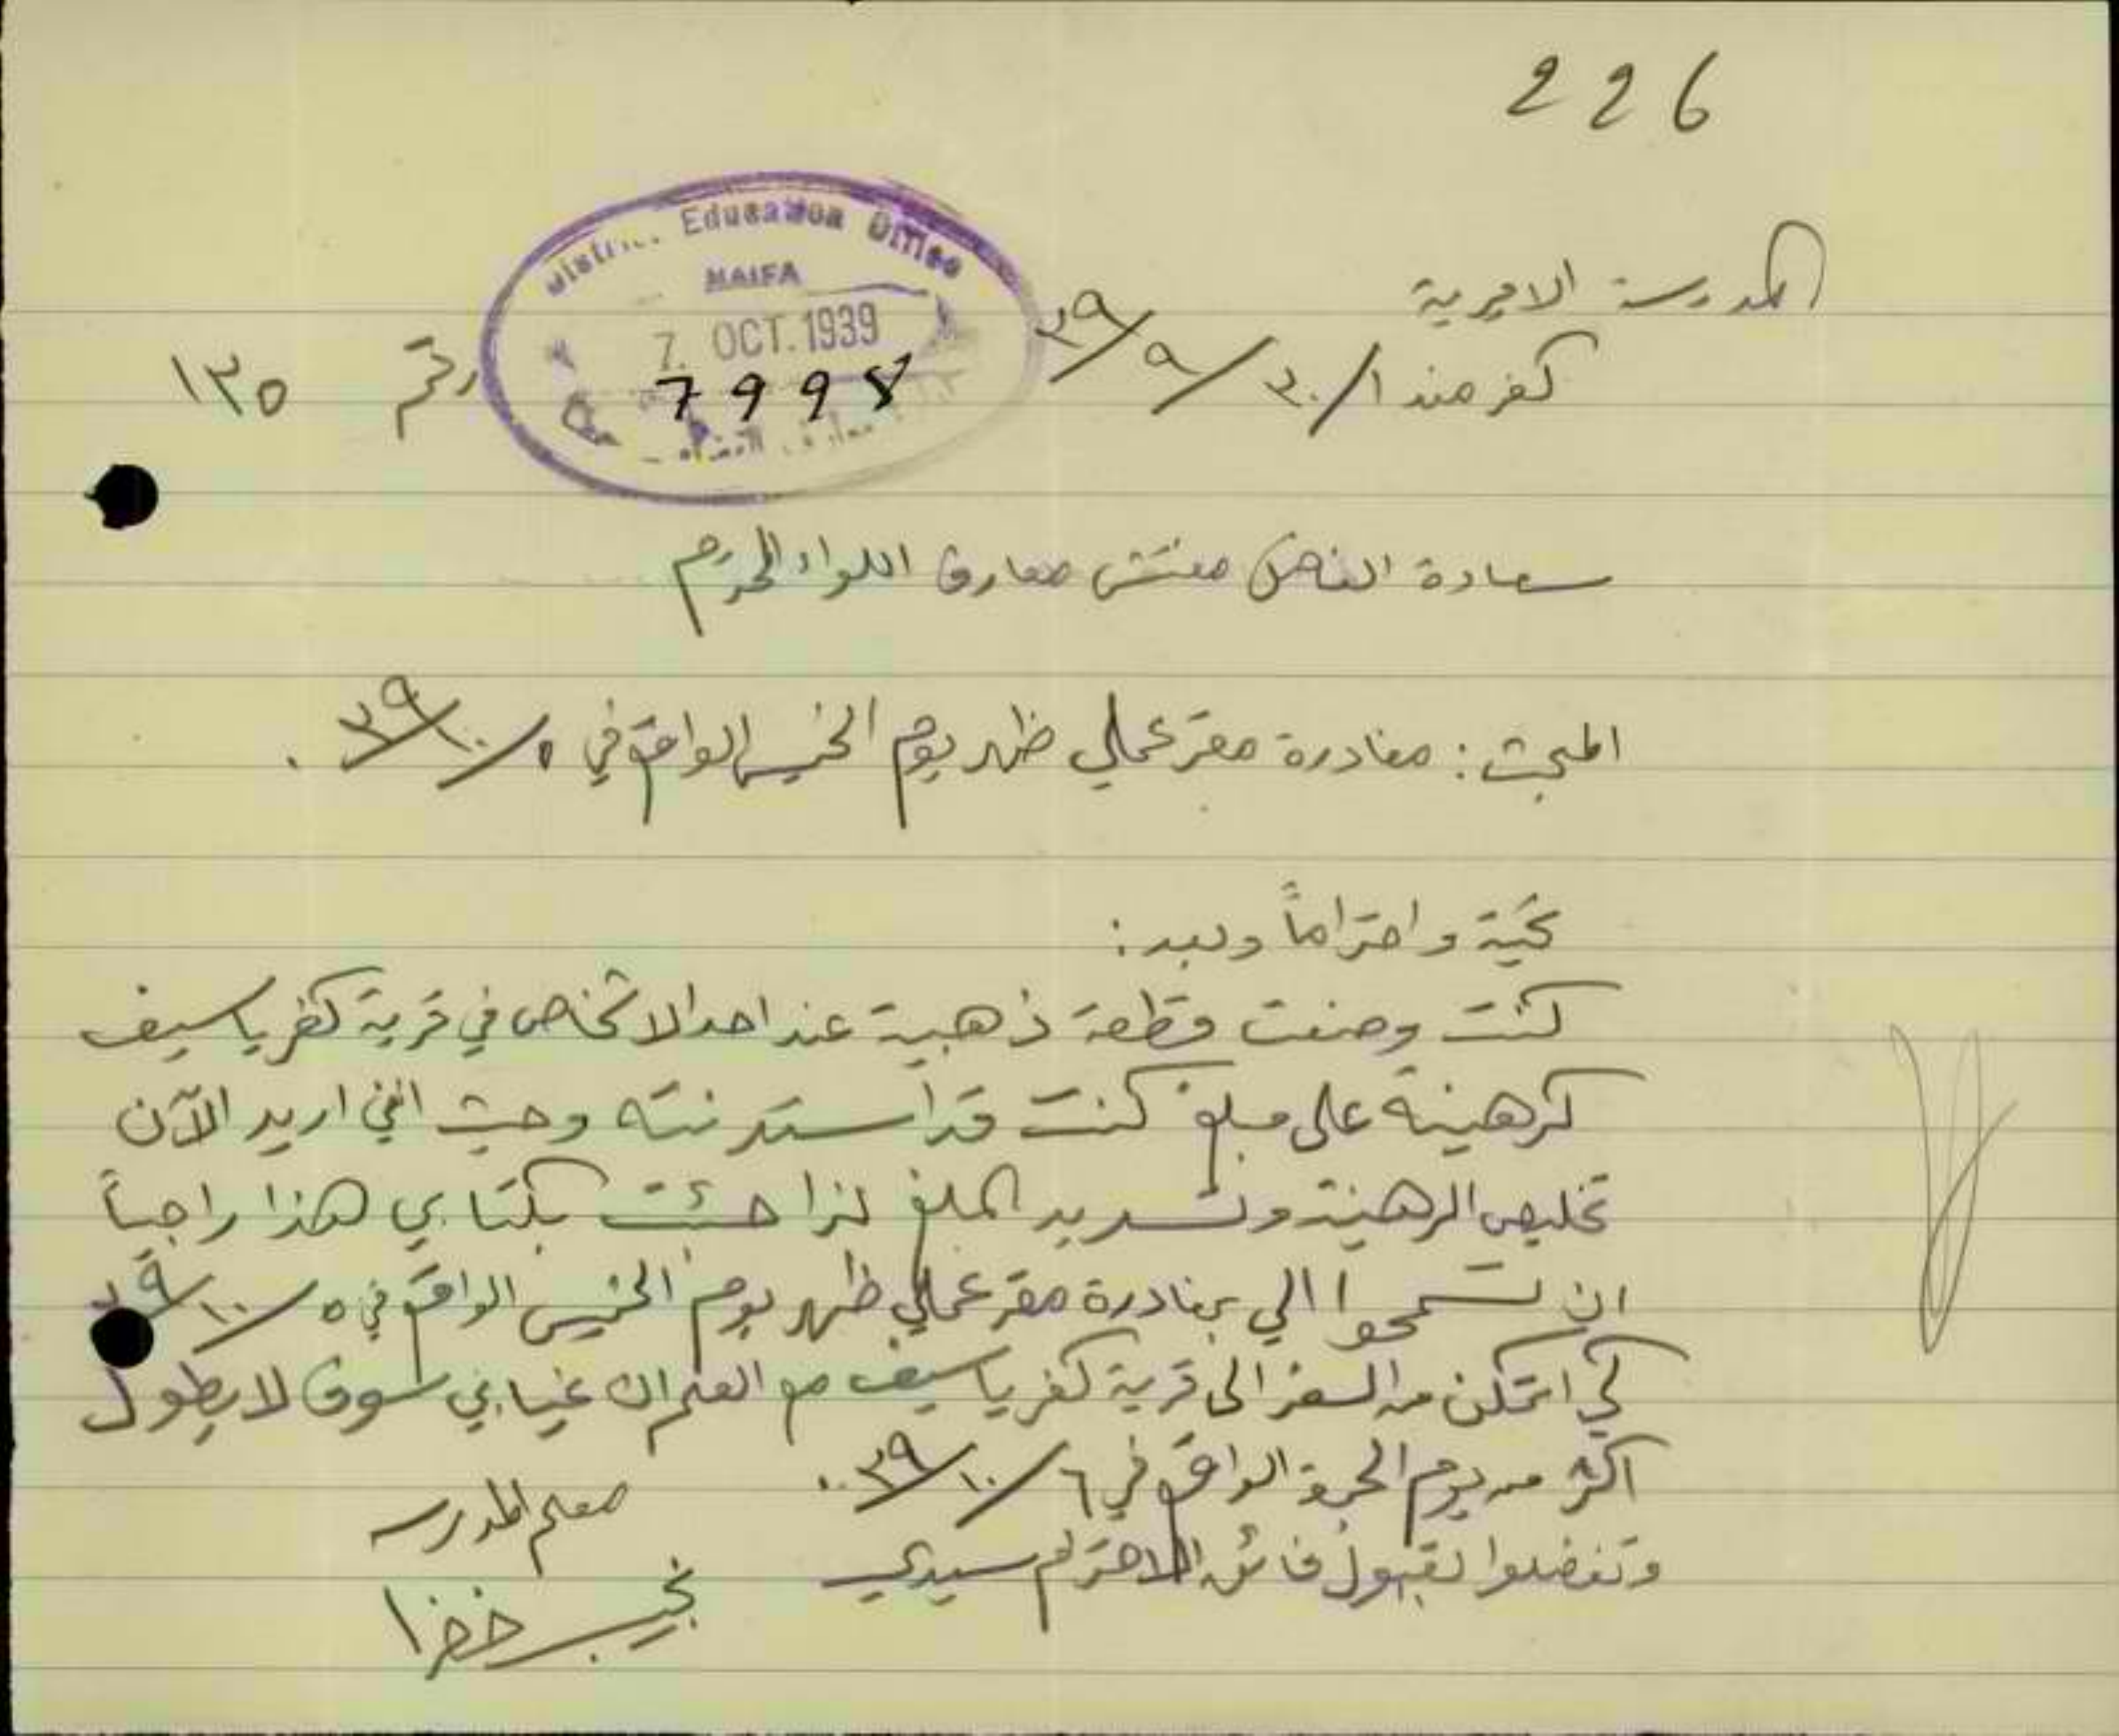 226
المدرسة الاميرية
كفر مندا ٣٠/٩/٣٩
District Education Office
HAIFA
7. OCT. 1939
7998
رقم ١٣٥
سعادة الفاضل مفتش معارف اللواء المحترم
المبحث: مغادرة مقر عملي ظهر يوم الخميس الواقع في ٥/١٠/٣٩.
تحية واحتراماً وبعد:
كنت وضعت قطعة ذهبية عند احد الاشخاص في قرية كفر ياسيف
كرهينة على مبلغ كنت قد استدنته وحيث انني اريد الآن
تخليص الرهينة وتسديد المبلغ لذا جئت بكتابي هذا راجياً
ان تسمحوا الي بمغادرة مقر عملي ظهر يوم الخميس الواقع في ٥/١٠/٣٩
كي اتمكن من السفر الى قرية كفر ياسيف مع العلم ان غيابي سوف لا يطول
اكثر من يوم الجمعة الواقع في ٦/١٠/٣٩.
وتفضلوا بقبول فائق الاحترام سيدي
معلم المدرسه
نجيب خضرا